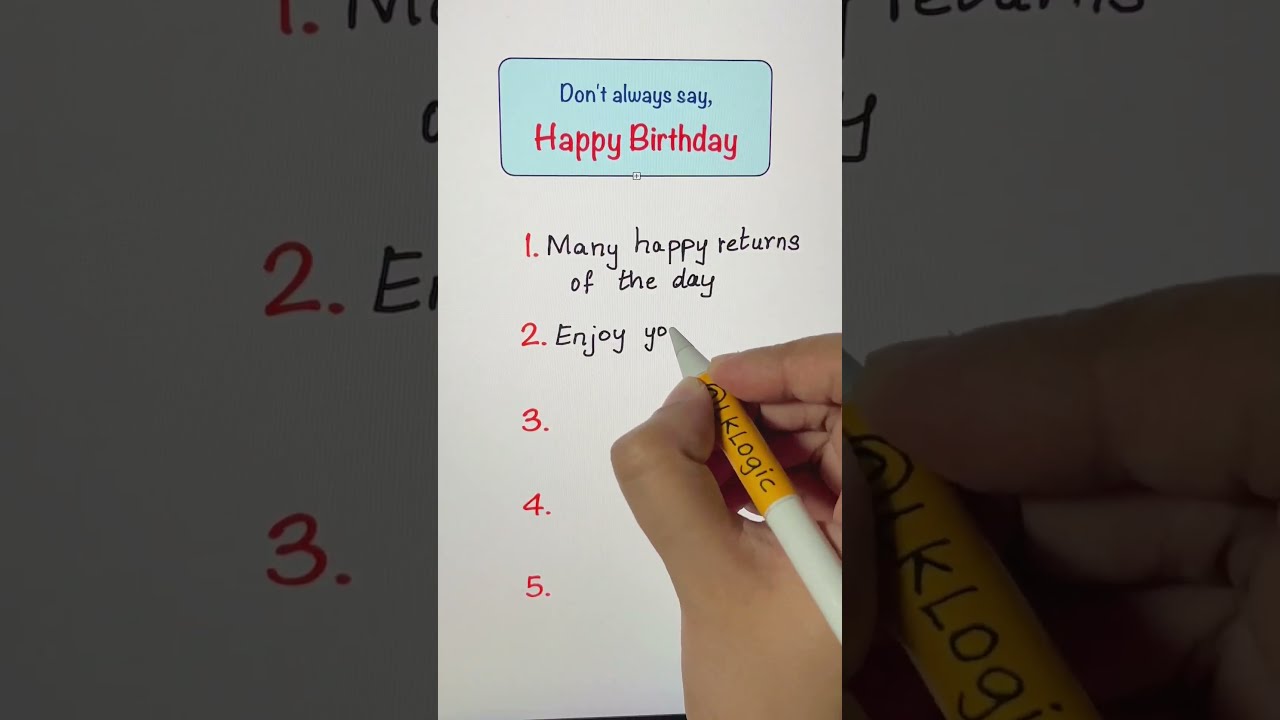 Don't always say,
Happy Birthday
1. Many happy returns
of the day
2. Enjoy yo
3.
4.
5.
@LKLogic